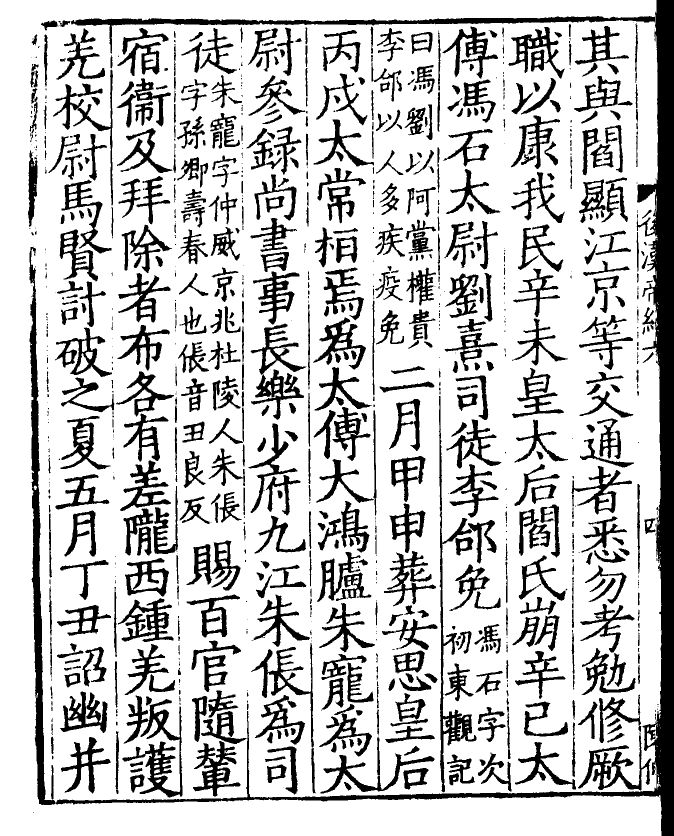 後漢帝紀六
四
其與閻顯江京等交通者悉勿考勉修厥
職以康我民辛未皇太后閻氏崩辛巳太
傅馮石太尉劉熹司徒李郃免馮石字次
初東觀記
曰馮劉以阿黨權貴
李郃以人多疾疫免二月甲申葬安思皇后
丙戌太常桓焉爲太傅大鴻臚朱寵爲太
尉參録尚書事長樂少府九江朱倀爲司
徒朱寵字仲威京兆杜陵人朱倀
字孫卿壽春人也倀音丑良反賜百官隨輦
宿衞及拜除者布各有差隴西鍾羌叛護
羌校尉馬賢討破之夏五月丁丑詔幽并